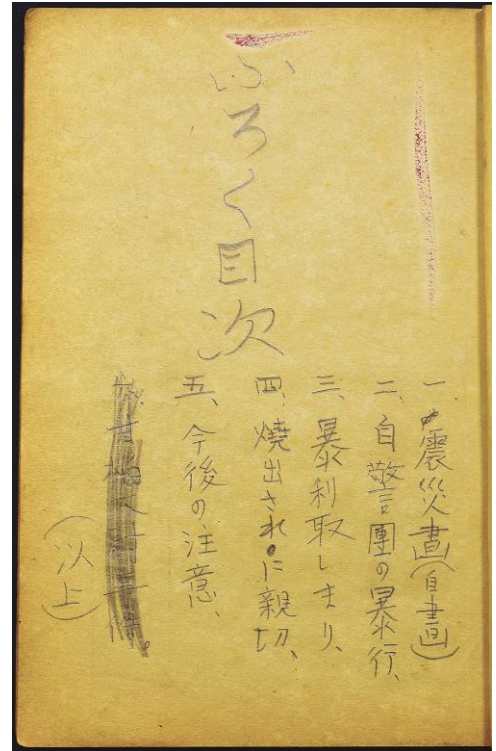 ふろく目次
一、震災畫(自畫)
二、自警團の暴行、
三、暴利取しまり、
四、燒出されに親切、
五、今後の注意、
(以上)